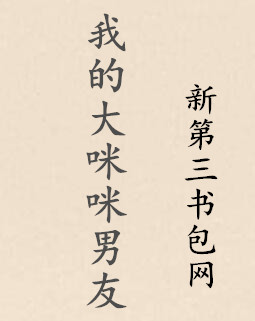 我的大咪咪男友
新第三书包网